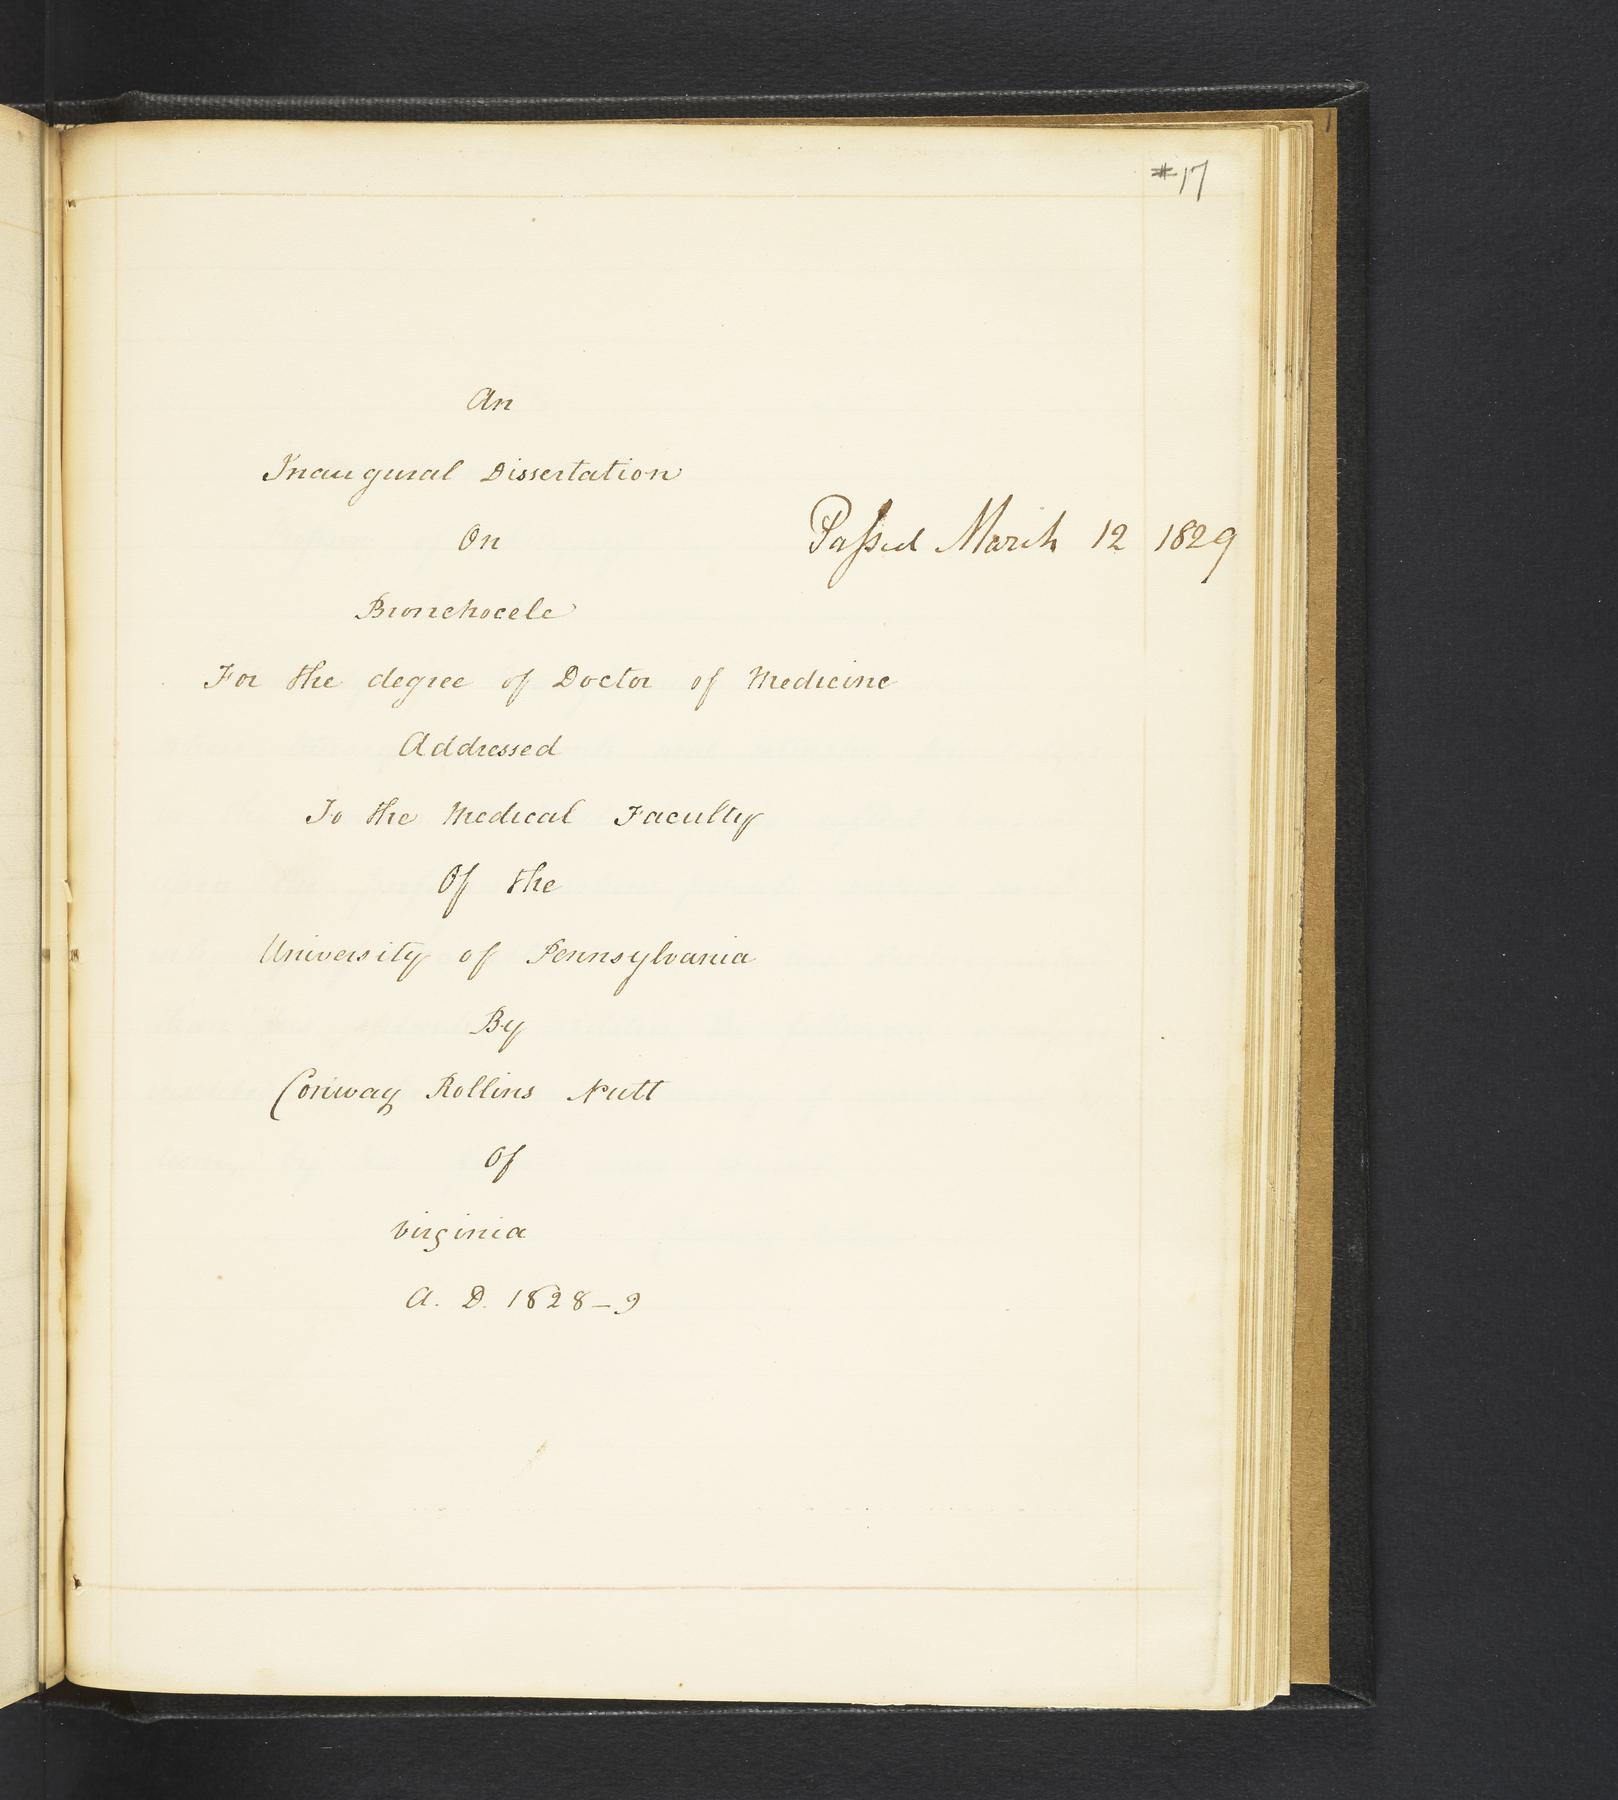 #17
An
Inaugural Dissertation
On
Passed March 12 1829
Bronchocele
For the degree of Doctor of Medicine
Addressed
To the Medical Faculty
Of the
University of Pennsylvania
By
Conway Rollins Nutt
Of
Virginia
A. D. 1828–9